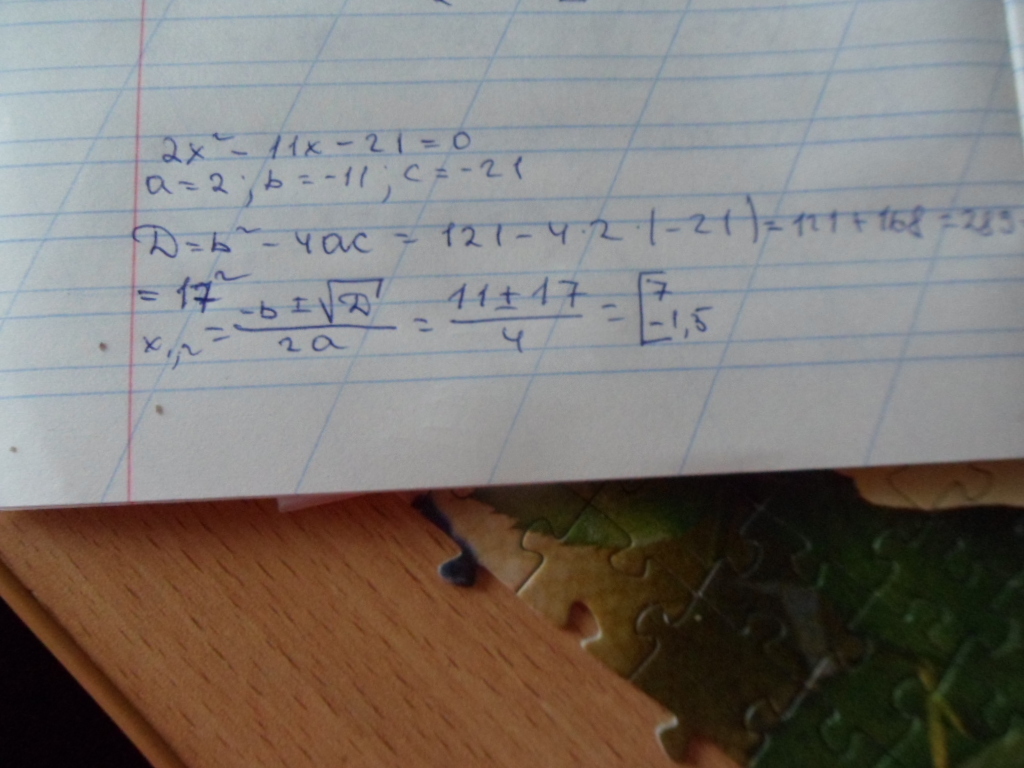 2x² - 11x - 21 = 0
a = 2 ; b = -11 ; c = -21
D = b² - 4ac = 121 - 4 · 2 · (-21) = 121 + 168 = 289 =
= 17²
x₁,₂ = (-b ± √D) / 2a = (11 ± 17) / 4 = [7
-1,5